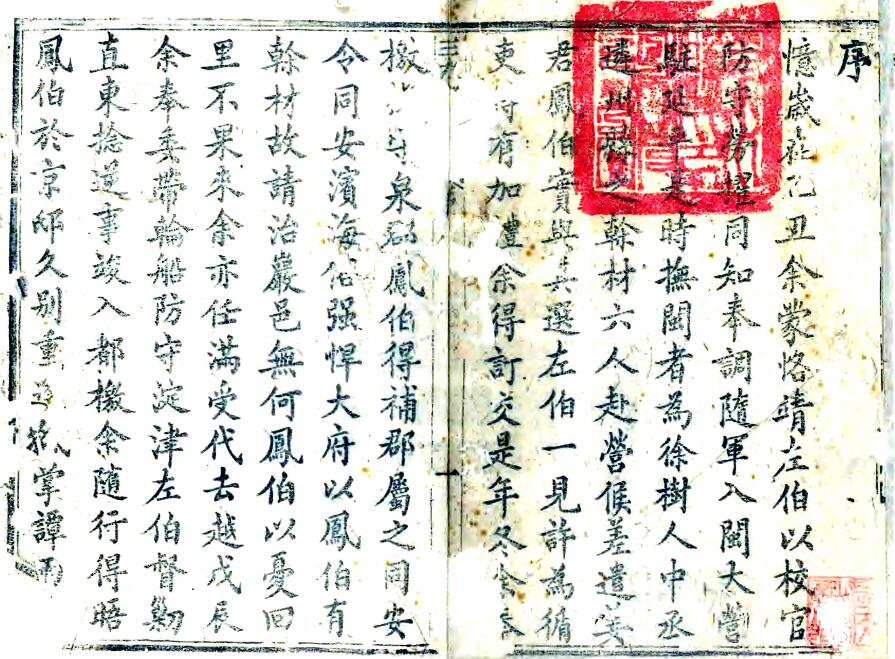 序
憶歲在乙丑余蒙恪靖左伯以校官
防守勞擢同知奉調隨軍入閩大營
駐延平是時撫閩者為徐樹人中丞
遴州縣之幹材六人赴營候差遣姜
君鳳伯實與其選左伯一見許為循
吏 有加禮余得訂交是年冬余
檄 泉郡鳳伯得補郡屬之同安
令同安濱海俗强悍大府以鳳伯有
幹材故請治巖邑無何鳳伯以憂回
里不果來余亦任滿受代去越戊辰
余奉委帶輪船防守淀津左伯督勦
直東捻逆事竣入都檄余隨行得晤
鳳伯於京邸久别重 掌譚